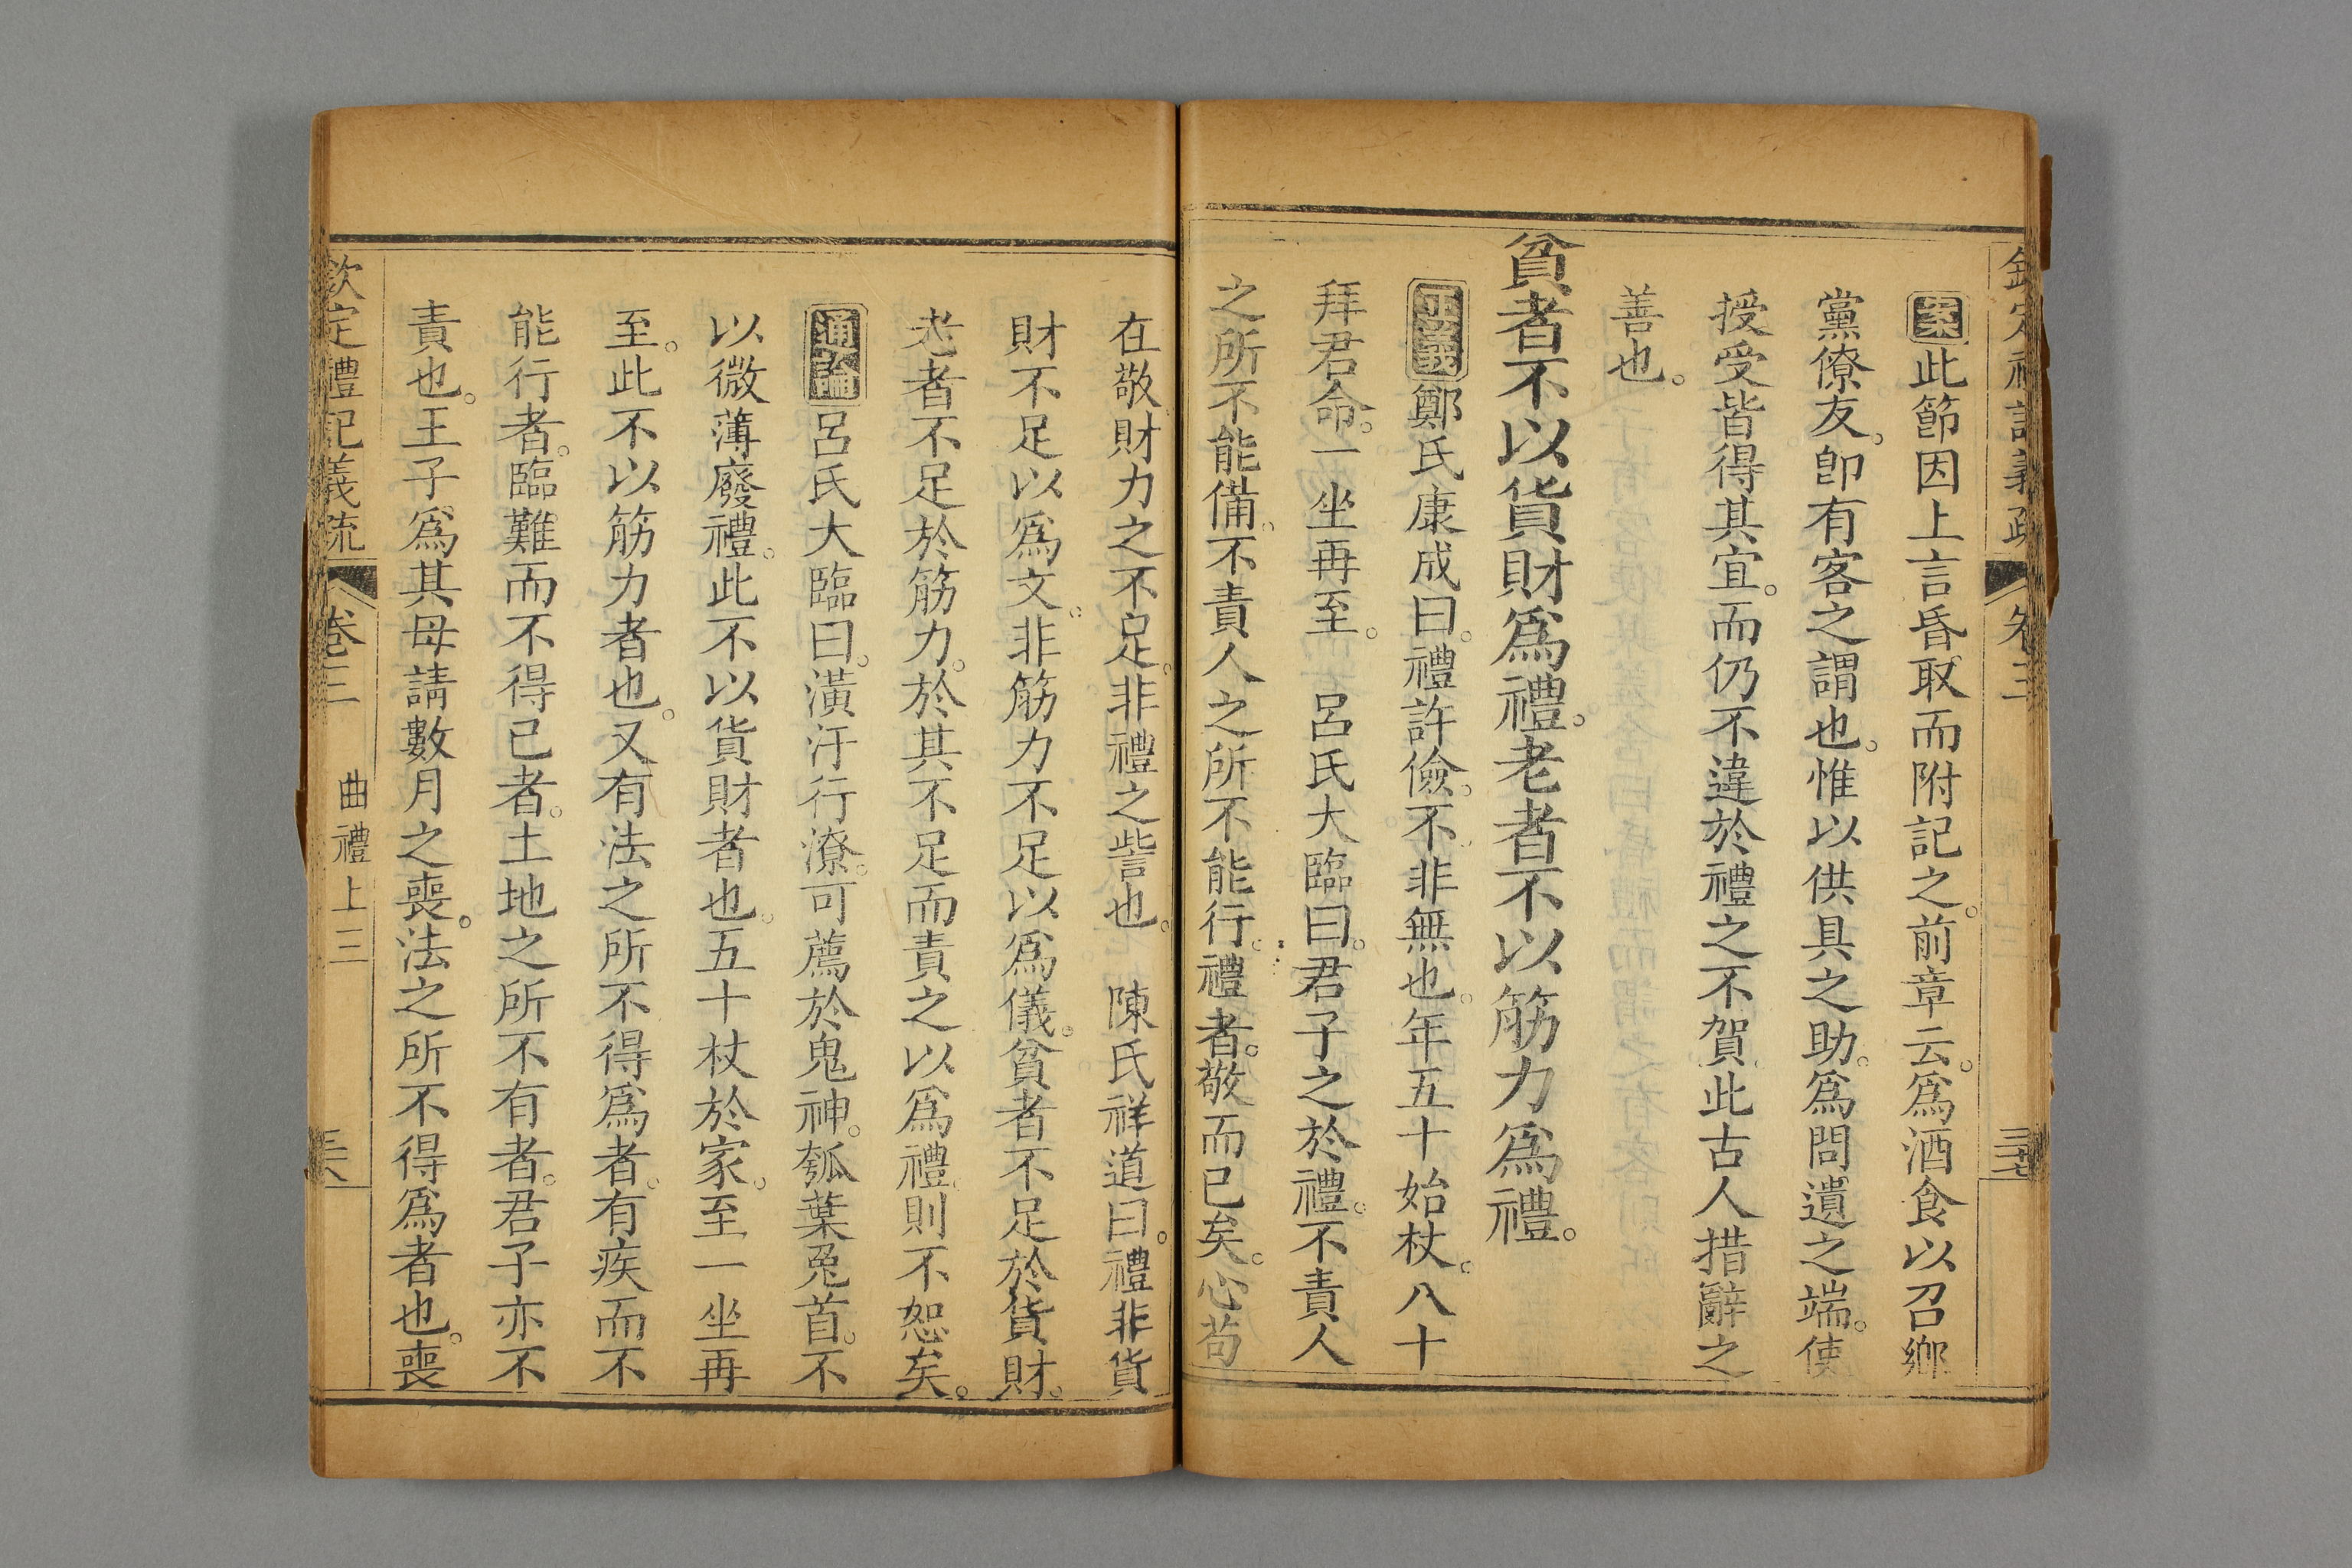 欽定禮記義疏 卷三 三十七
案此節因上言昏取而附記之。前章云。爲酒食以召鄉
黨僚友。卽有客之謂也。惟以供具之助。爲問遺之端。使
授受皆得其宜。而仍不違於禮之不賀此古人措辭之
善也。
貧者不以貨財爲禮。老者不以筋力爲禮。
正義鄭氏康成曰。禮許儉。不非無也。年五十始杖。八十
拜君命。一坐再至。 呂氏大臨曰。君子之於禮。不責人
之所不能備。不責人之所不能行。禮者。敬而已矣。心苟
在敬財力之不足。非禮之訾也。 陳氏祥道曰。禮非貨
財不足以爲文。非筋力不足以爲儀。貧者不足於貨財。
老者不足於筋力。於其不足而責之以爲禮則不恕矣。
通論呂氏大臨曰。潢汙行潦。可薦於鬼神。瓠葉兔首。不
以微薄廢禮。此不以貨財者也。五十杖於家。至一坐再
至。此不以筋力者也。又有法之所不得爲者。有疾而不
能行者。臨難而不得已者。土地之所不有者。君子亦不
責也。王子爲其母請數月之喪。法之所不得爲者也。喪
欽定禮記義疏 卷三 曲禮上三 三十八